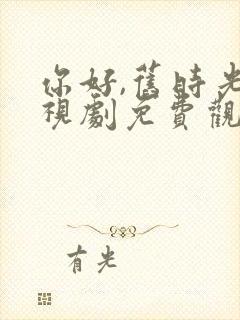 你好,舊時光
視劇免費觀
有光